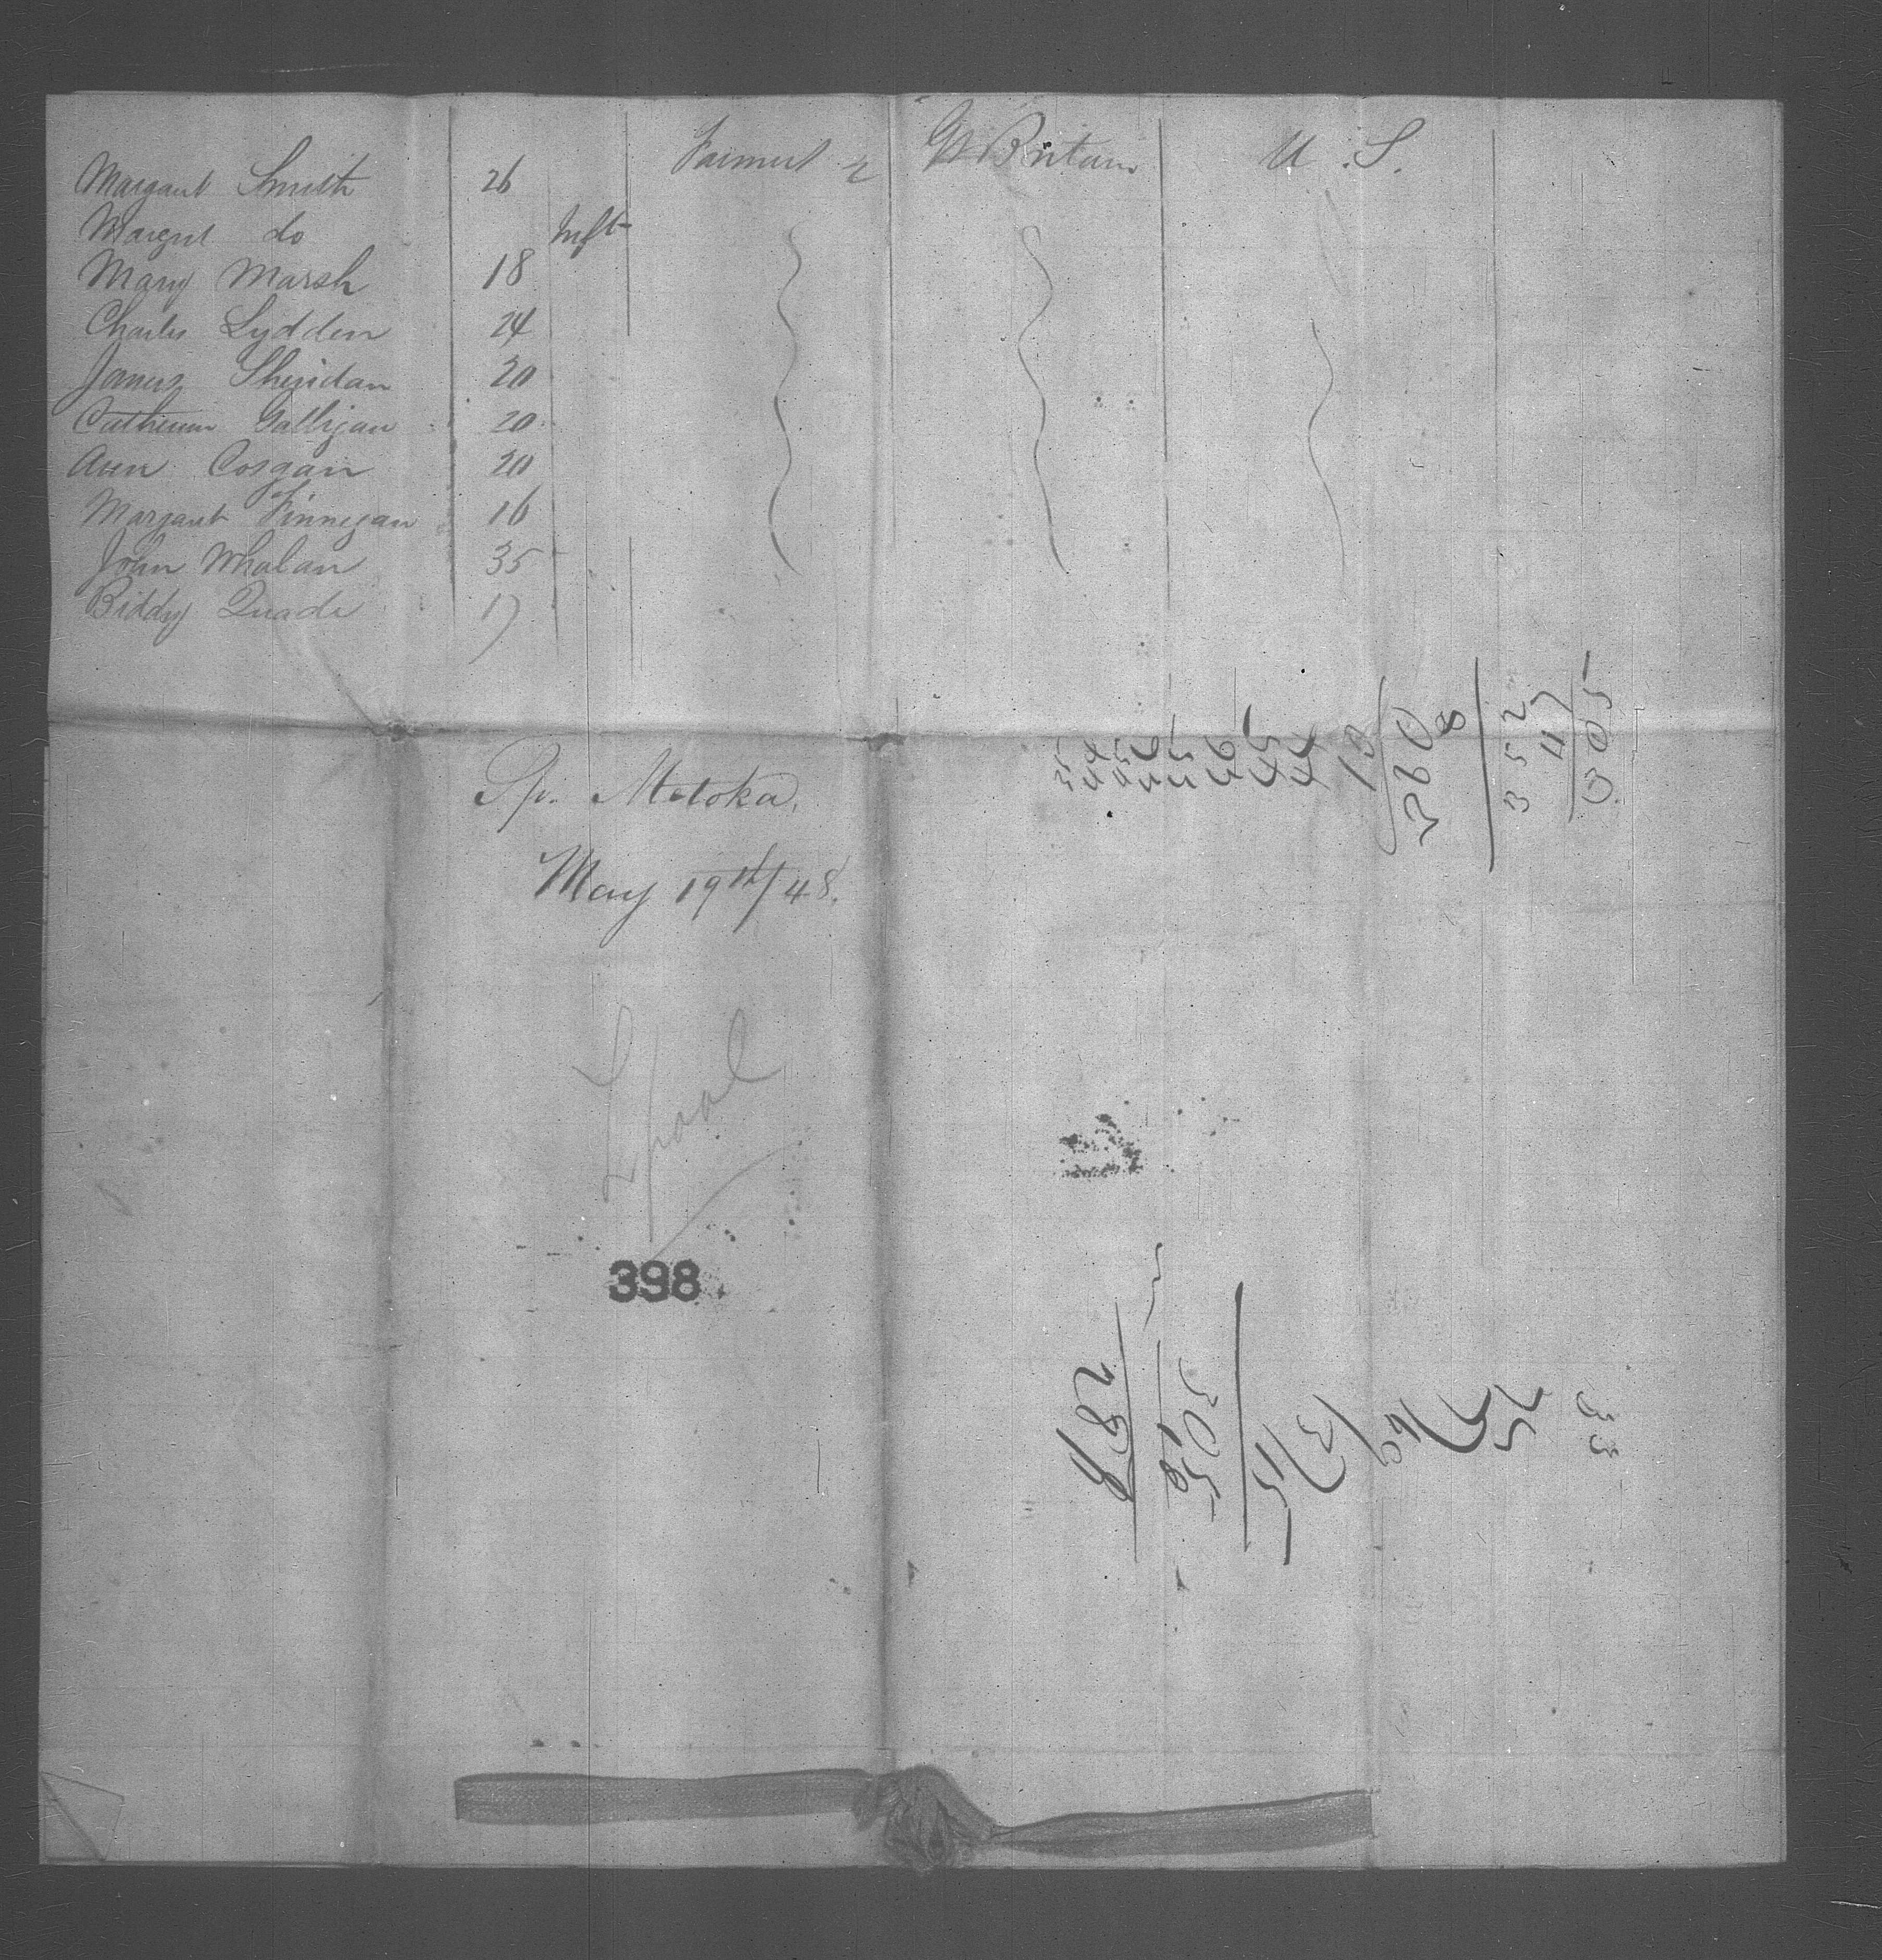 Margaret Smith 26 Farmers & Gt Britain U.S.
Margret do Inft
Mary Marsh 18
Charles Lydden 24
James Sheridan 20
Catherine Galligan 20
Ann Cosgan 20
Margaret Finnegan 16
John Whalan 35
Biddy Quade 17
Sp. Metoka.
May 19th/48.
Lpool
398
13
360
8
352
47
305
305
18
287
33